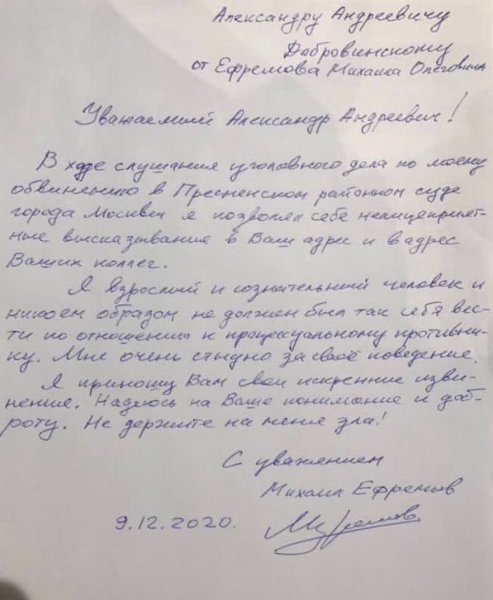 Александру Андреевичу
Добровинскому
от Ефремова Михаила Олеговича
Уважаемый Александр Андреевич!
В ходе слушания уголовного дела по моему
обвинению в Пресненском районном суде
города Москвы я позволял себе нелицеприят-
ные высказывания в Ваш адрес и в адрес
Ваших коллег.
Я взрослый и сознательный человек и
никоем образом не должен был так себя вес-
ти по отношению к процессуальному противни-
ку. Мне очень стыдно за своё поведение.
Я приношу Вам свои искренние изви-
нения. Надеюсь на Ваше понимание и доб-
роту. Не держите на меня зла!
С уважением
Михаил Ефремов
9.12.2020.